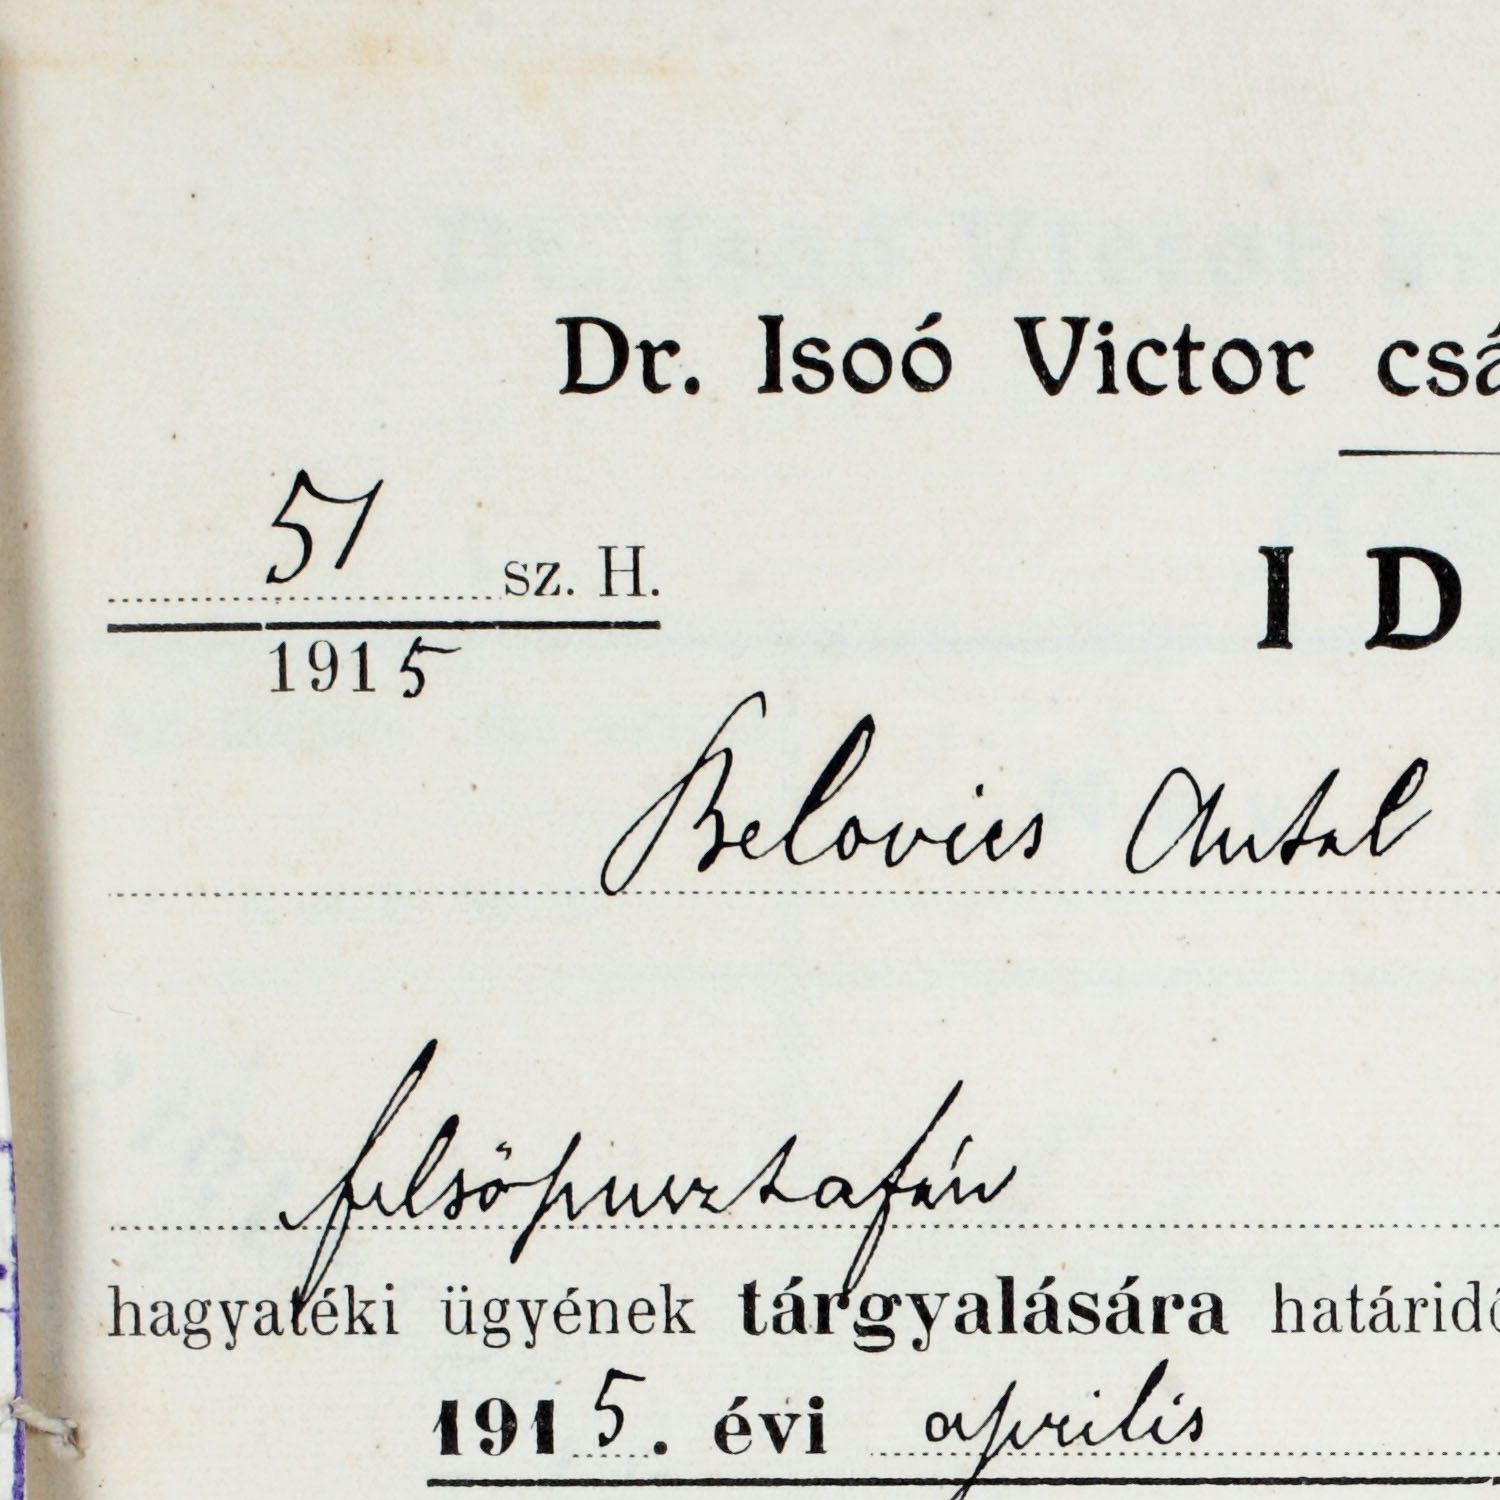 Dr. Isoó Victor csá
51 sz. H.
1915
I D
Belovics Antal
felsőpusztafán
hagyatéki ügyének tárgyalására határidő
1915. évi április